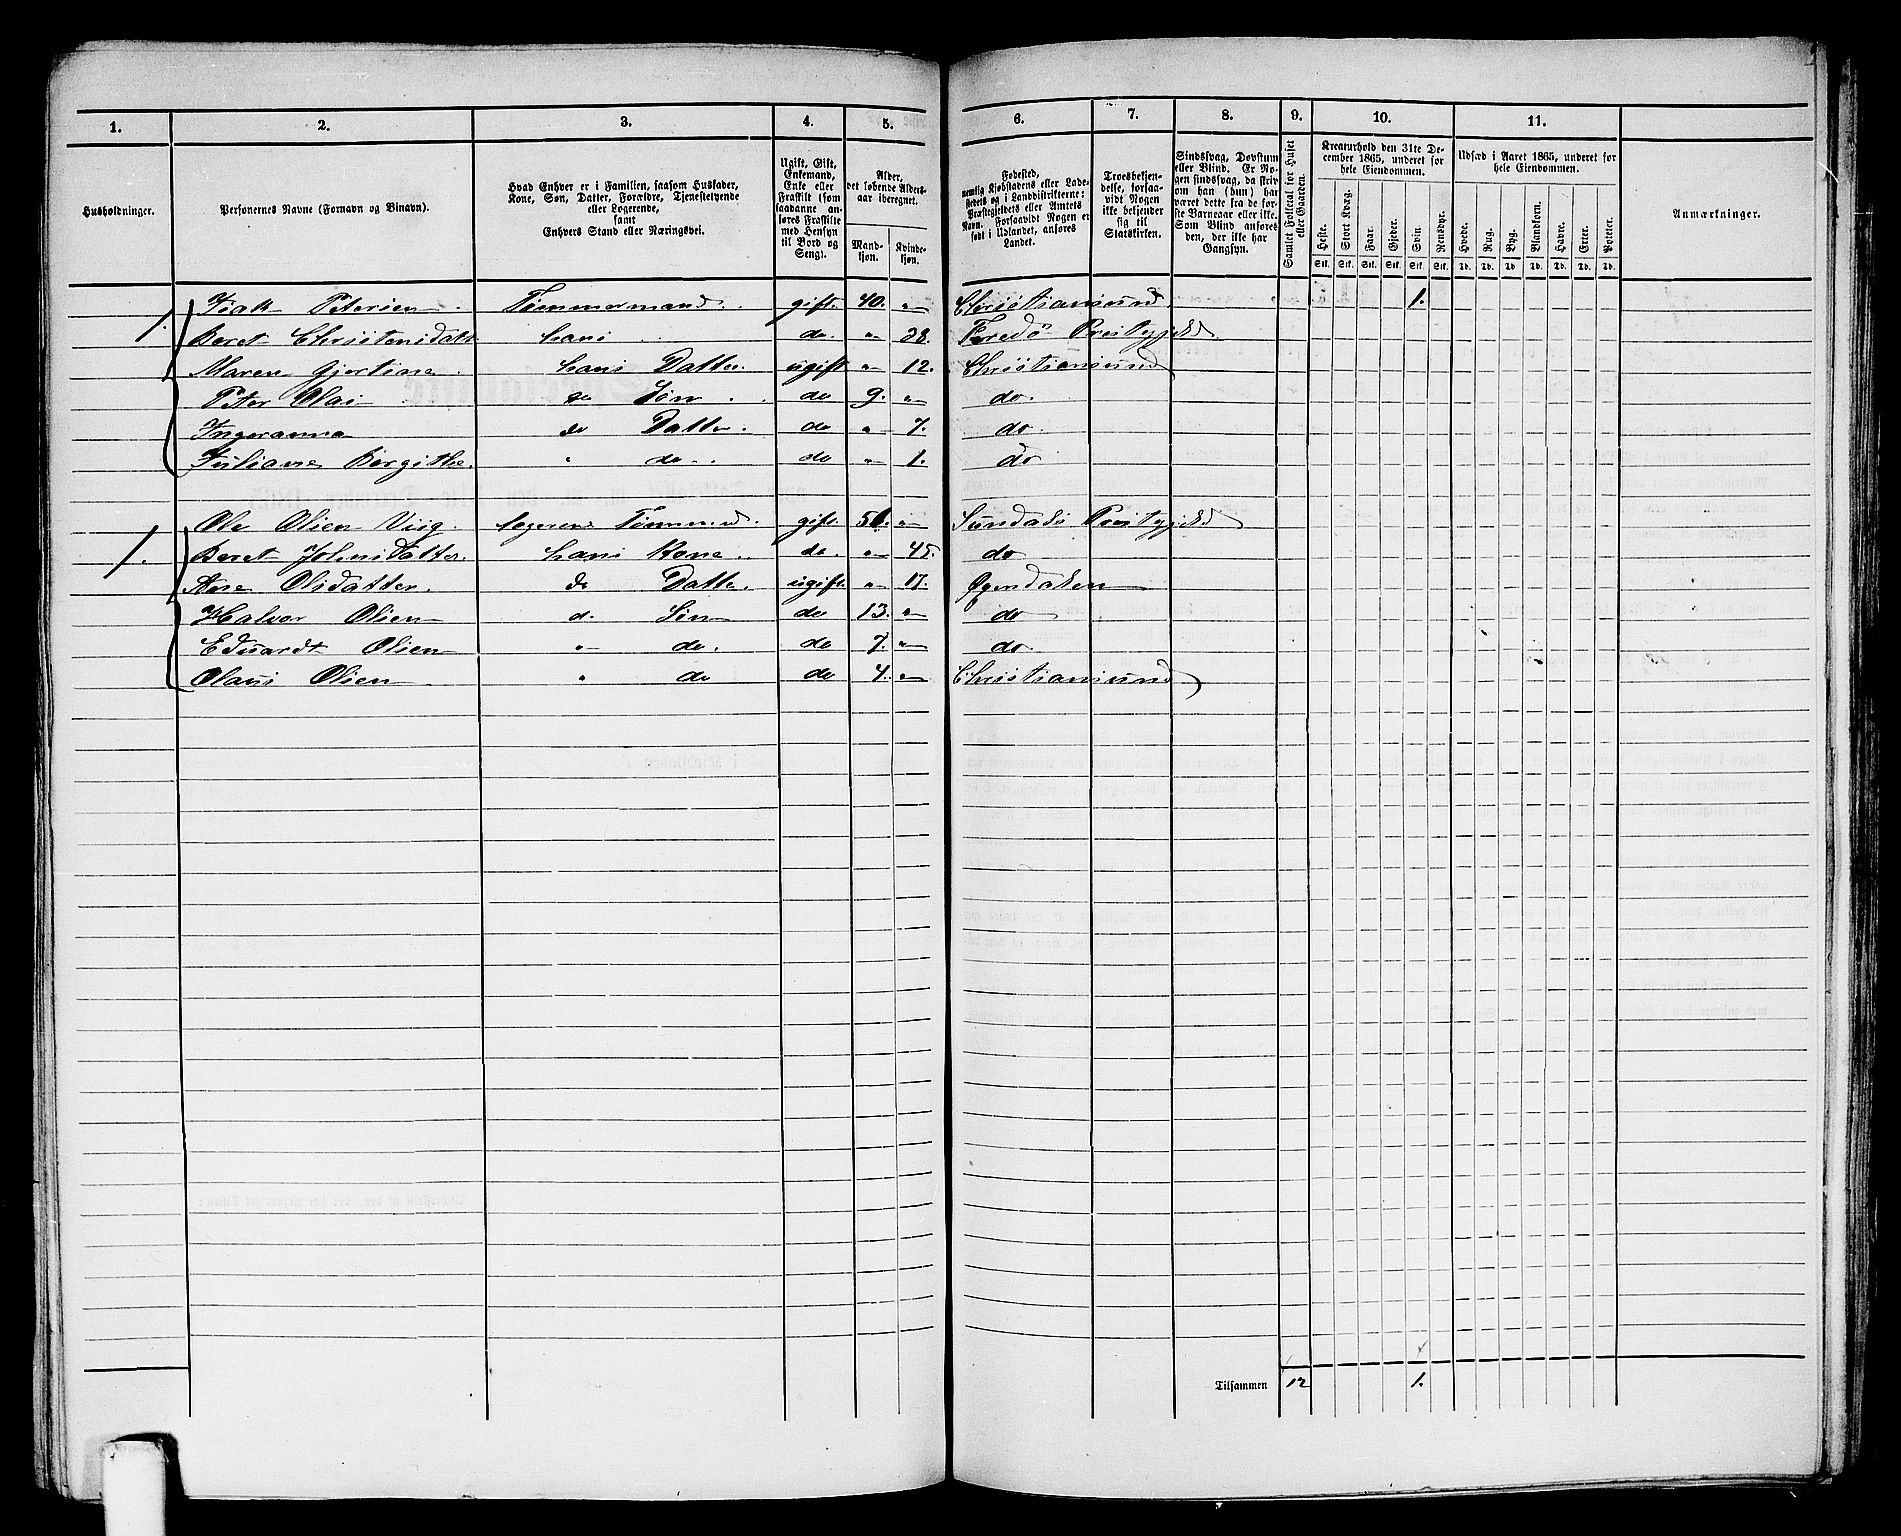 1. 2. 3. 4. 5. 6. 7. 8. 9. 10. 11.
Husholdninger.
Personernes Navne (Fornavn og Binavn).
Hvad Enhver er i Familien, saasom Husfader,
Kone, Søn, Datter, Forældre, Tjenestetyende
eller Logerende,
samt
Enhvers Stand eller Næringsvei.
Ugift, Gift,
Enkemand,
Enke eller
Fraskilt (som
saadanne an-
føres Fraskilte
med Hensyn
til Bord og
Seng).
Alder,
det løbende Alders-
aar iberegnet.
Mand-
kjøn.
Kvinde-
kjøn.
Fødested,
nemlig Kjøbstadens eller Lade-
stedets og i Landdistrikterne:
Præstegjeldets eller Amtets
Navn. Forsaavidt Nogen er
født i Udlandet, anføres
Landet.
Troesbekjen-
delse, forsaa-
vidt Nogen
ikke bekjender
sig til
Statskirken.
Sindssvag, Døvstum
eller Blind. Er No-
gen sindssvag, da skriv
om han (hun) har
været dette fra de før-
ste Barneaar eller ikke.
Som Blind anføres
den, der ikke har
Gangsyn.
Samlet Folketal for Huset
eller Gaarden.
Kreaturhold den 31te De-
cember 1865, underet for
hele Eiendommen.
Heste. Stort Kvæg. Faar. Gjeder. Svin. Rensdyr.
Stk. Stk. Stk. Stk. Stk. Stk.
Udsæd i Aaret 1865, underet for
hele Eiendommen.
Hvede. Rug. Byg. Blandkorn. Havre. Erter. Poteter.
Td. Td. Td. Td. Td. Td. Td.
Anmærkninger.
Isak Petersen Tømmermand. gift. 40. " Christiansund 1.
1. Beret Christensdatt hans do. " 28. Præstegjeld
Maren Gjertine hans Datter. ugift " 12. Christiansund
Peter Olai do Søn do 9. " do.
Ingeranna do Datter. do " 7. do
Juliane Bergithe. " do. do " 1. do
Ole Olsen Viig. logerende gift. " Sundals Præstegjeld
1. Beret Johnsdatter. hans Kone. do. " 45. do
Ane Olsdatter. do Datter. ugift. " 17. Øgendalen
Halvor Olsen d. Søn do 13. " do
Eduardt Olsen " do. do 7. " do
Olaus Olsen " do do 4. " Christiansund
Tilsammen 12 1.